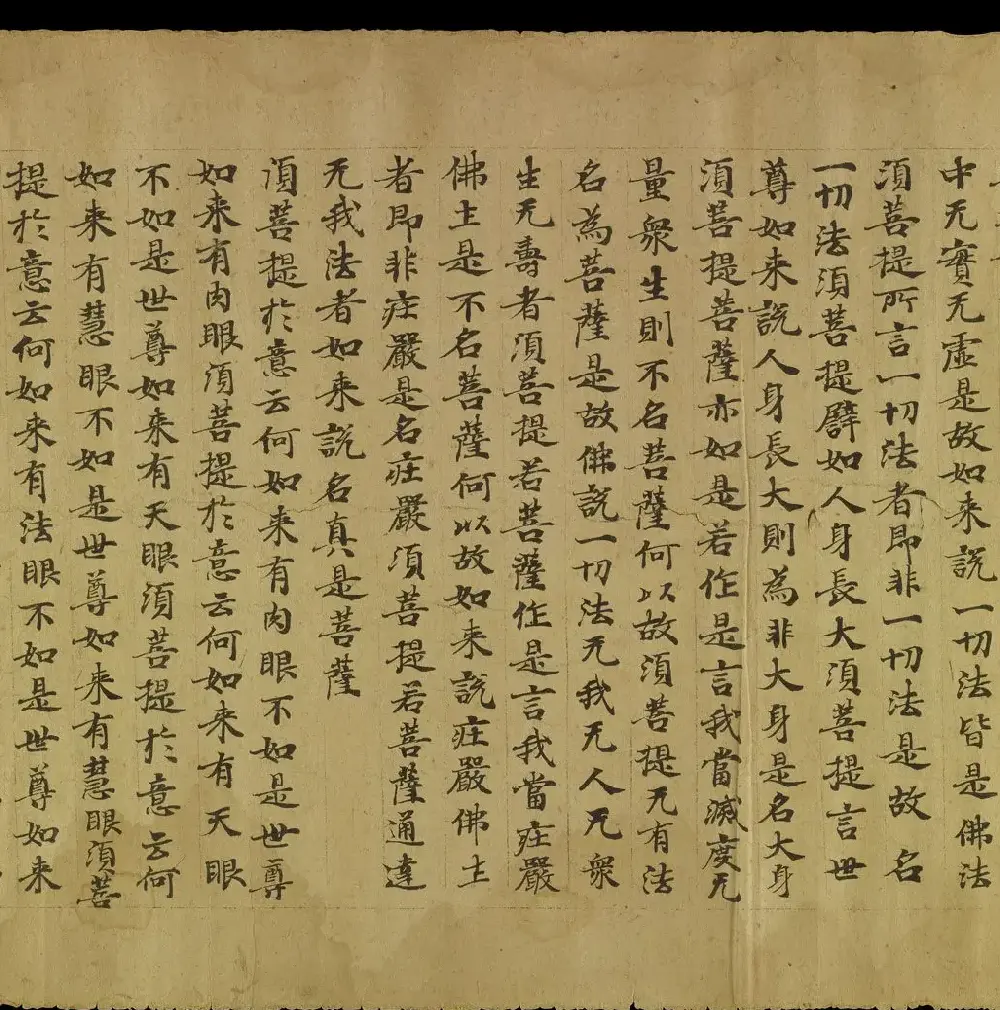 中无實无虛是故如来說一切法皆是佛法
須菩提所言一切法者即非一切法是故名
一切法須菩提譬如人身長大須菩提言世
尊如来說人身長大則為非大身是名大身
須菩提菩薩亦如是若作是言我當滅度无
量衆生則不名菩薩何以故須菩提无有法
名為菩薩是故佛說一切法无我无人无衆
生无壽者須菩提若菩薩作是言我當莊嚴
佛土是不名菩薩何以故如来說莊嚴佛土
者即非莊嚴是名莊嚴須菩提若菩薩通達
无我法者如来說名真是菩薩
須菩提於意云何如来有肉眼不如是世尊
如来有肉眼須菩提於意云何如来有天眼
不如是世尊如来有天眼須菩提於意云何
如来有慧眼不如是世尊如来有慧眼須菩
提於意云何如来有法眼不如是世尊如来